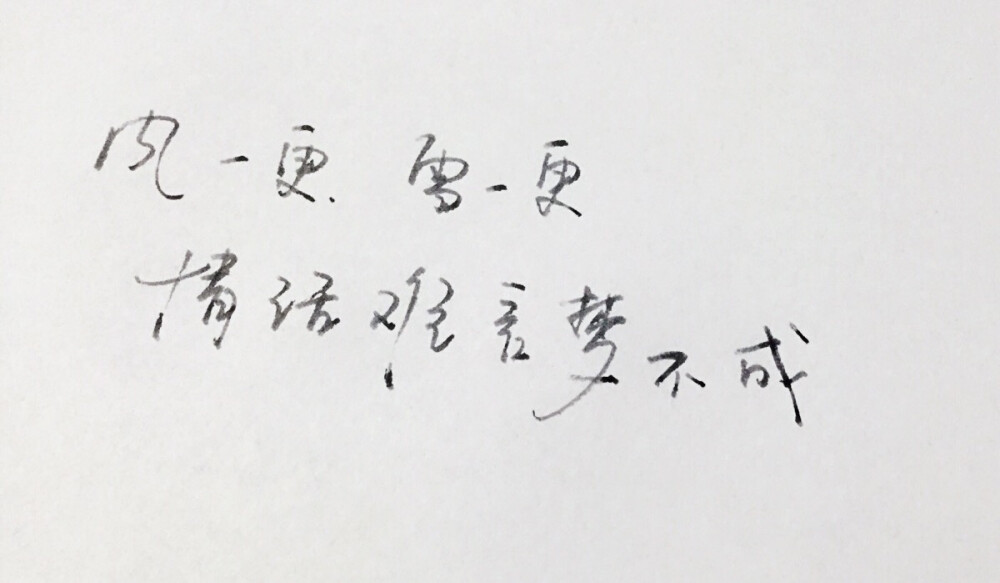 风一更 雪一更
情话难言梦不成